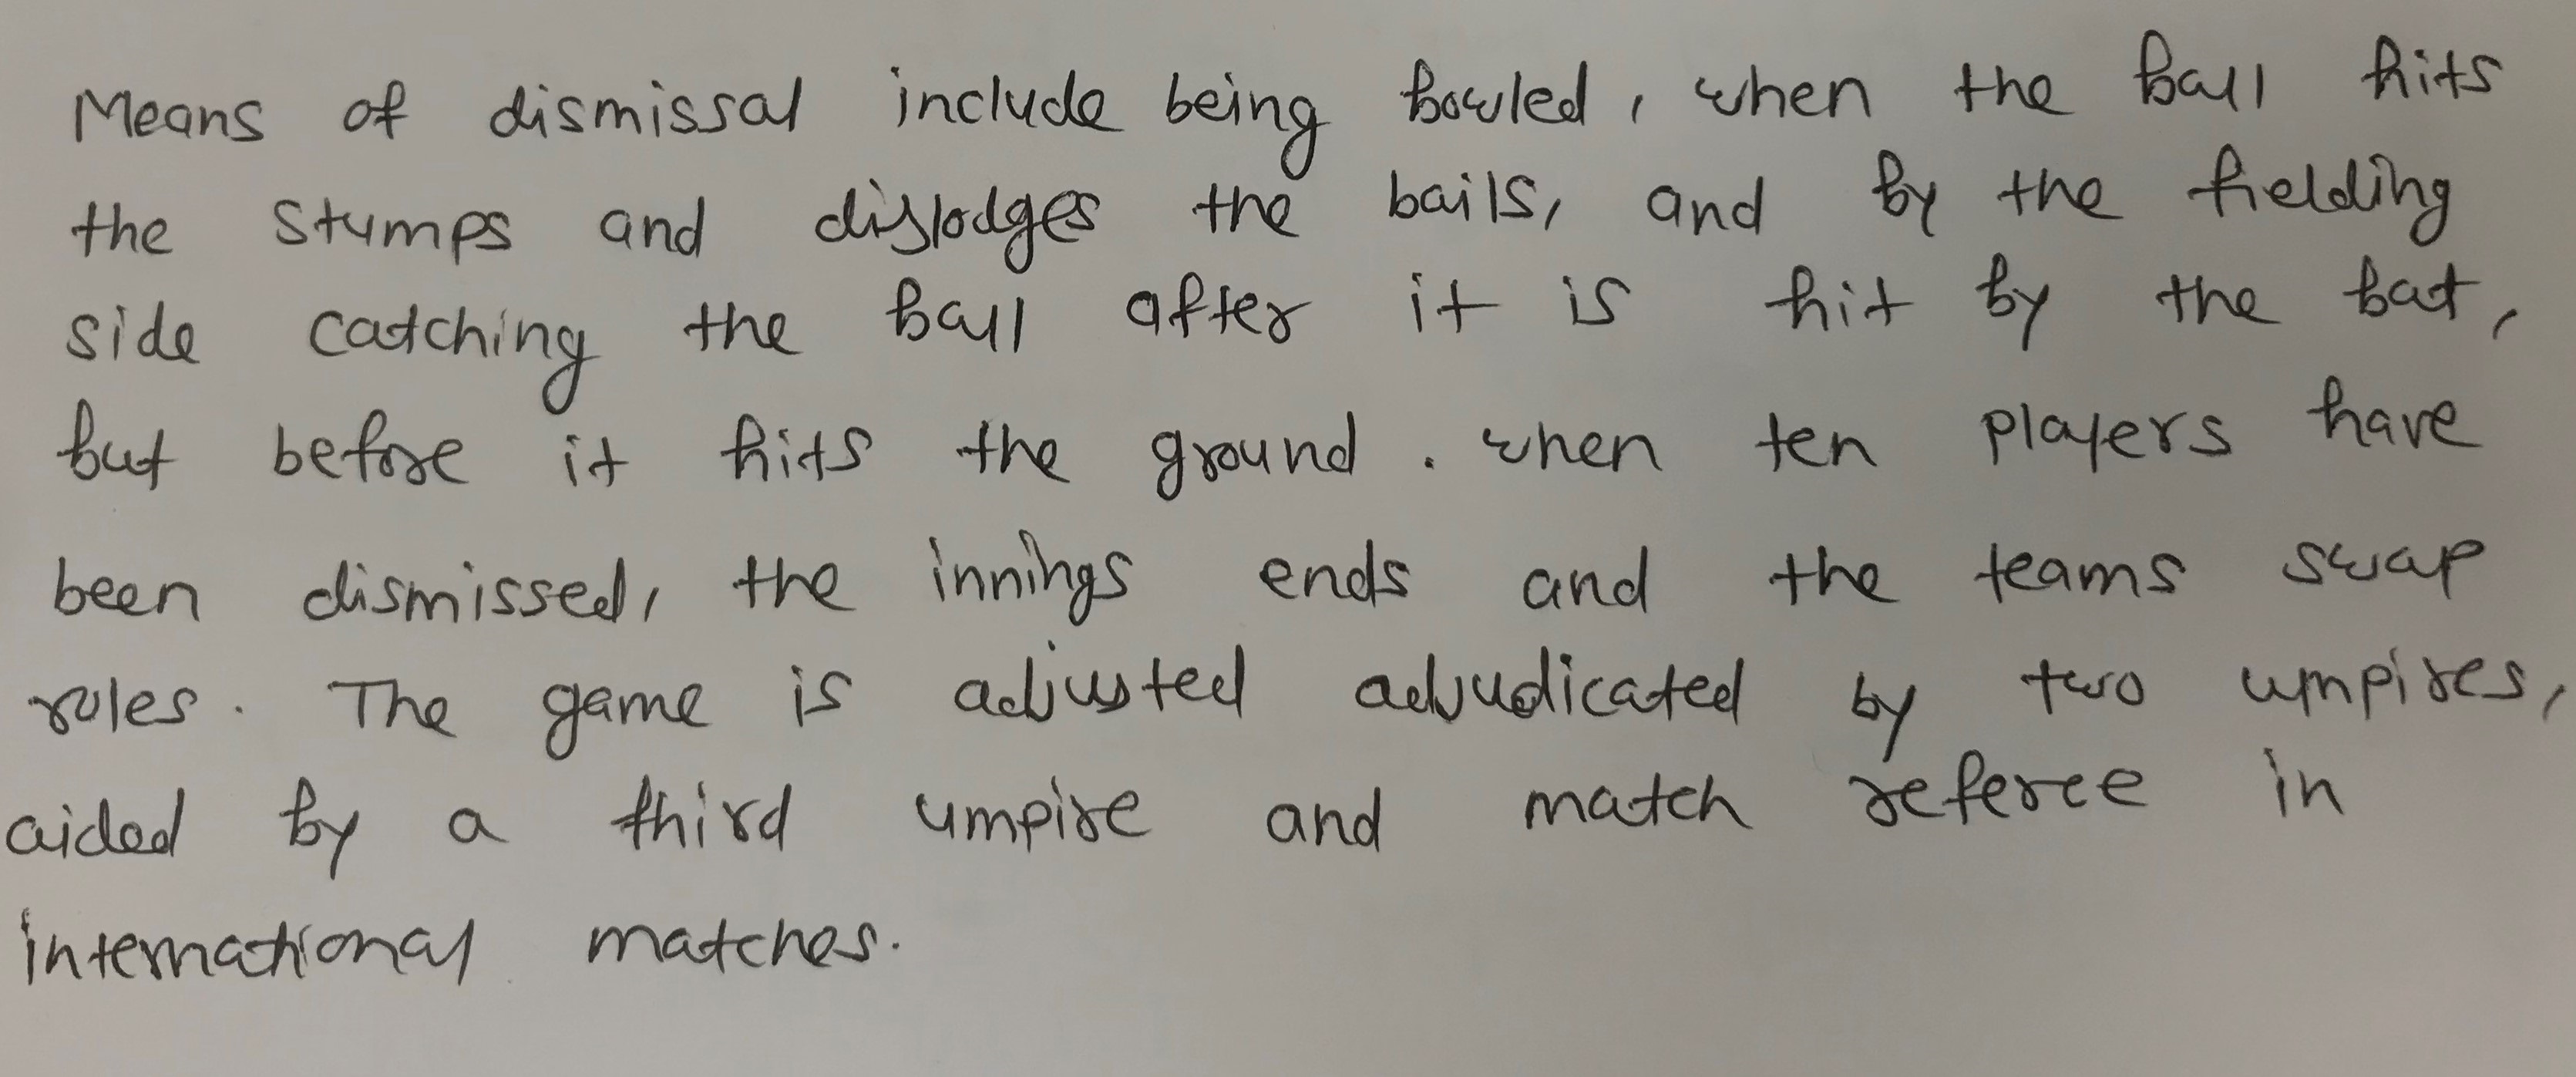 Means of dismissal include being bowled, when the ball hits
the stumps and dislodges the bails, and by the fielding
side catching the ball after it is hit by the bat,
but before it hits the ground. when ten players have
been dismissed, the innings ends and the teams swap
roles. The game is adjusted adjudicated by two umpires,
aided by a third umpire and match referee in
international matches.